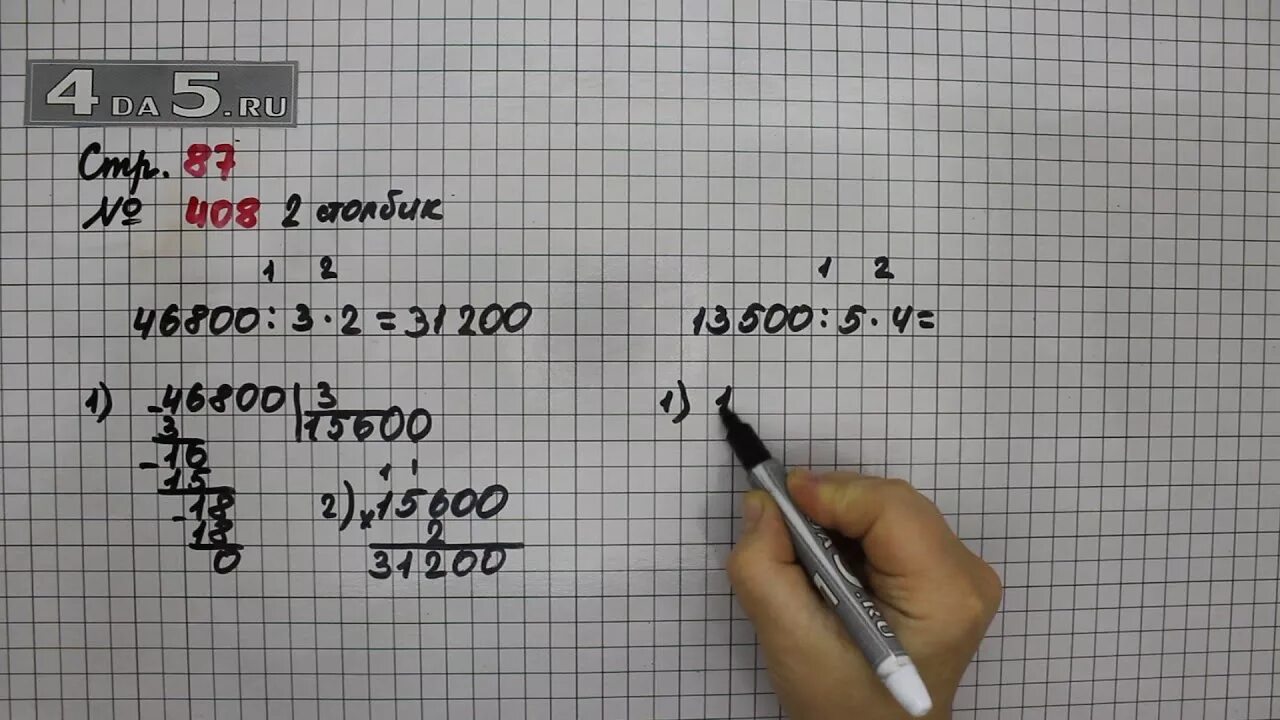 4DA5.RU
Стр. 87
№ 408 2 столбик
1 2
46800 : 3 · 2 = 31200
1) -46800 | 3
3 15600
-16
15
-18
18
0
1 1
2) ×15600
2
31200
1 2
13500 : 5 · 4 =
1) 1
5.RU